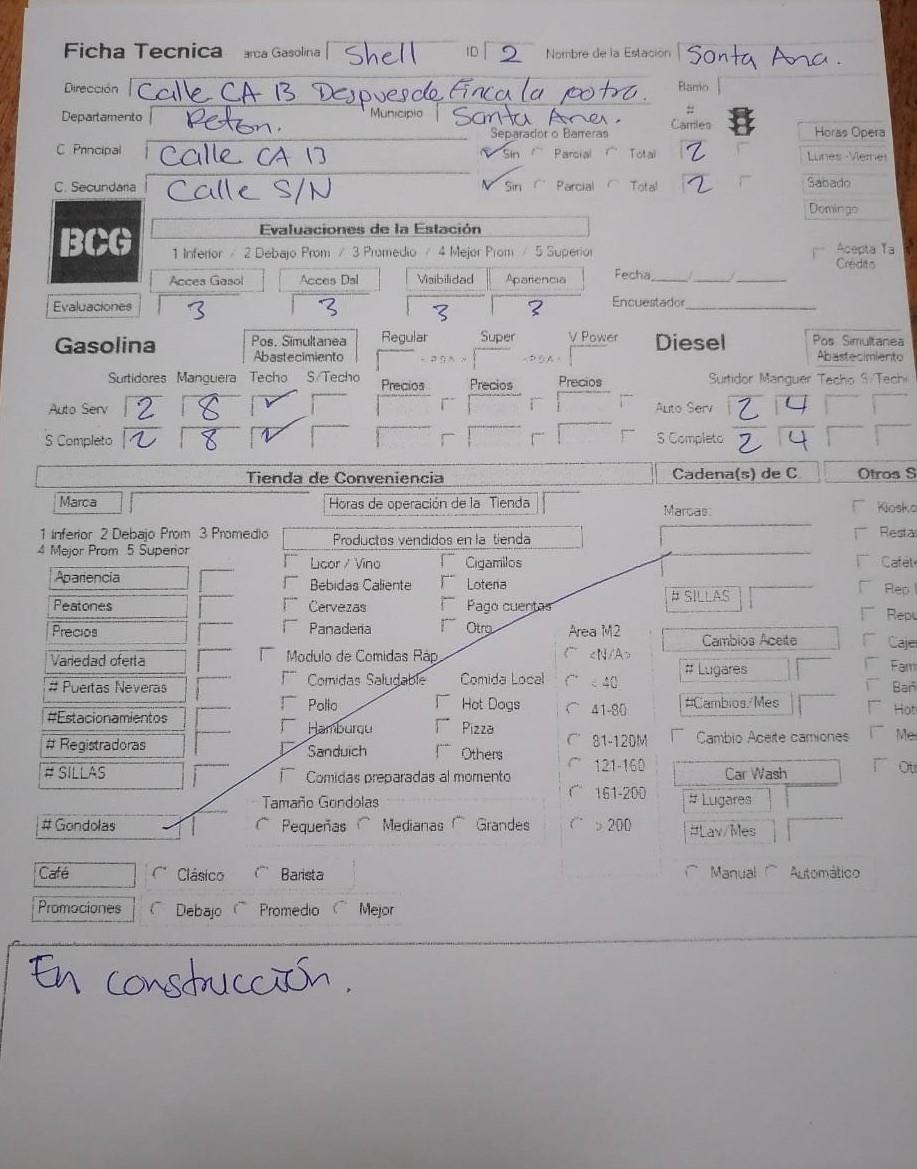 Ficha Tecnica arca Gasolina Shell ID 2 Nombre de la Estacion Santa Ana.
Dirección Calle CA 13 Despues de Finca la potra. Barrio
Departamento Peten. Municipio Santa Ana. # Carriles
Separador o Barreras Horas Opera
C Principal Calle CA 13 Sin Parcial Total 2 Lunes -Viernes
C. Secundaria Calle S/N Sin Parcial Total 2 Sabado
Domingo
BCG Evaluaciones de la Estación
1 Inferior / 2 Debajo Prom / 3 Promedio / 4 Mejor Prom / 5 Superior Acepta Ta
Crédito
Acces Gasol Acces Dsl Visibilidad Apariencia Fecha __/__/__
Evaluaciones 3 3 3 3 Encuestador
Gasolina Pos. Simultanea Abastecimiento Regular Super V Power Diesel Pos Simultanea Abastecimiento
Surtidores Manguera Techo S/Techo Precios Precios Precios Surtidor Manguer Techo S/Tech
Auto Serv 2 8 Auto Serv 2 4
S Completo 2 8 S Completo 2 4
Tienda de Conveniencia Cadena(s) de C. Otros S
Marca Horas de operación de la Tienda Marcas: Kiosko
1 Inferior 2 Debajo Prom 3 Promedio Productos vendidos en la tienda Resta
4 Mejor Prom 5 Superior
Licor / Vino Cigarrillos Cafet
Apariencia Bebidas Caliente Loteria Rep
Peatones Cervezas Pago cuentas # SILLAS Repu
Precios Panaderia Otro Area M2 Cambios Aceite Caje
Variedad oferta Modulo de Comidas Ráp <N/A> # Lugares Fam
# Puertas Neveras Comidas Saludable Comida Local < 40 Bañ
#Estacionamientos Pollo Hot Dogs 41-80 #Cambios/Mes Hot
# Registradoras Hamburgu Pizza 81-120M Cambio Aceite camiones Me
# SILLAS Sanduich Others 121-160 Car Wash Otr
Comidas preparadas al momento 161-200 # Lugares
Tamaño Gondolas
# Gondolas Pequeñas Medianas Grandes > 200 #Lav/Mes
Café Clásico Barista Manual Automático
Promociones Debajo Promedio Mejor
En construcción.